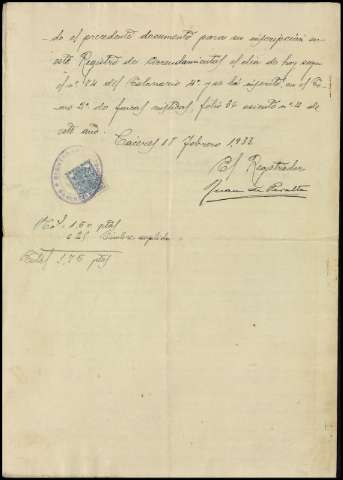 do el precedente documento para su inscripción en
este Registro de Arrendamientos el dia de hoy segun
el nº 84 del Talonario 4º y se ha inscrito en el To-
mo 2º de fincas rústicas, folio 36 asiento nº 2 de
este año.
Caceres 18 Febrero 1933
El Registrador
Juan de Peralta
1,50 ptas
0,25 Timbre suplido
Total 1,75 ptas